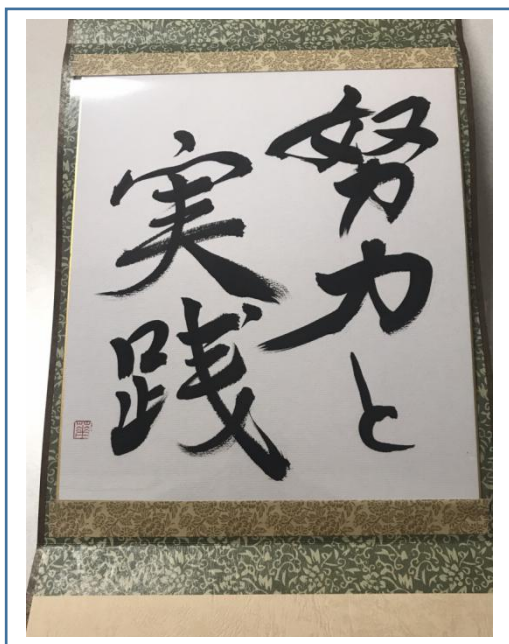 努力と
実践